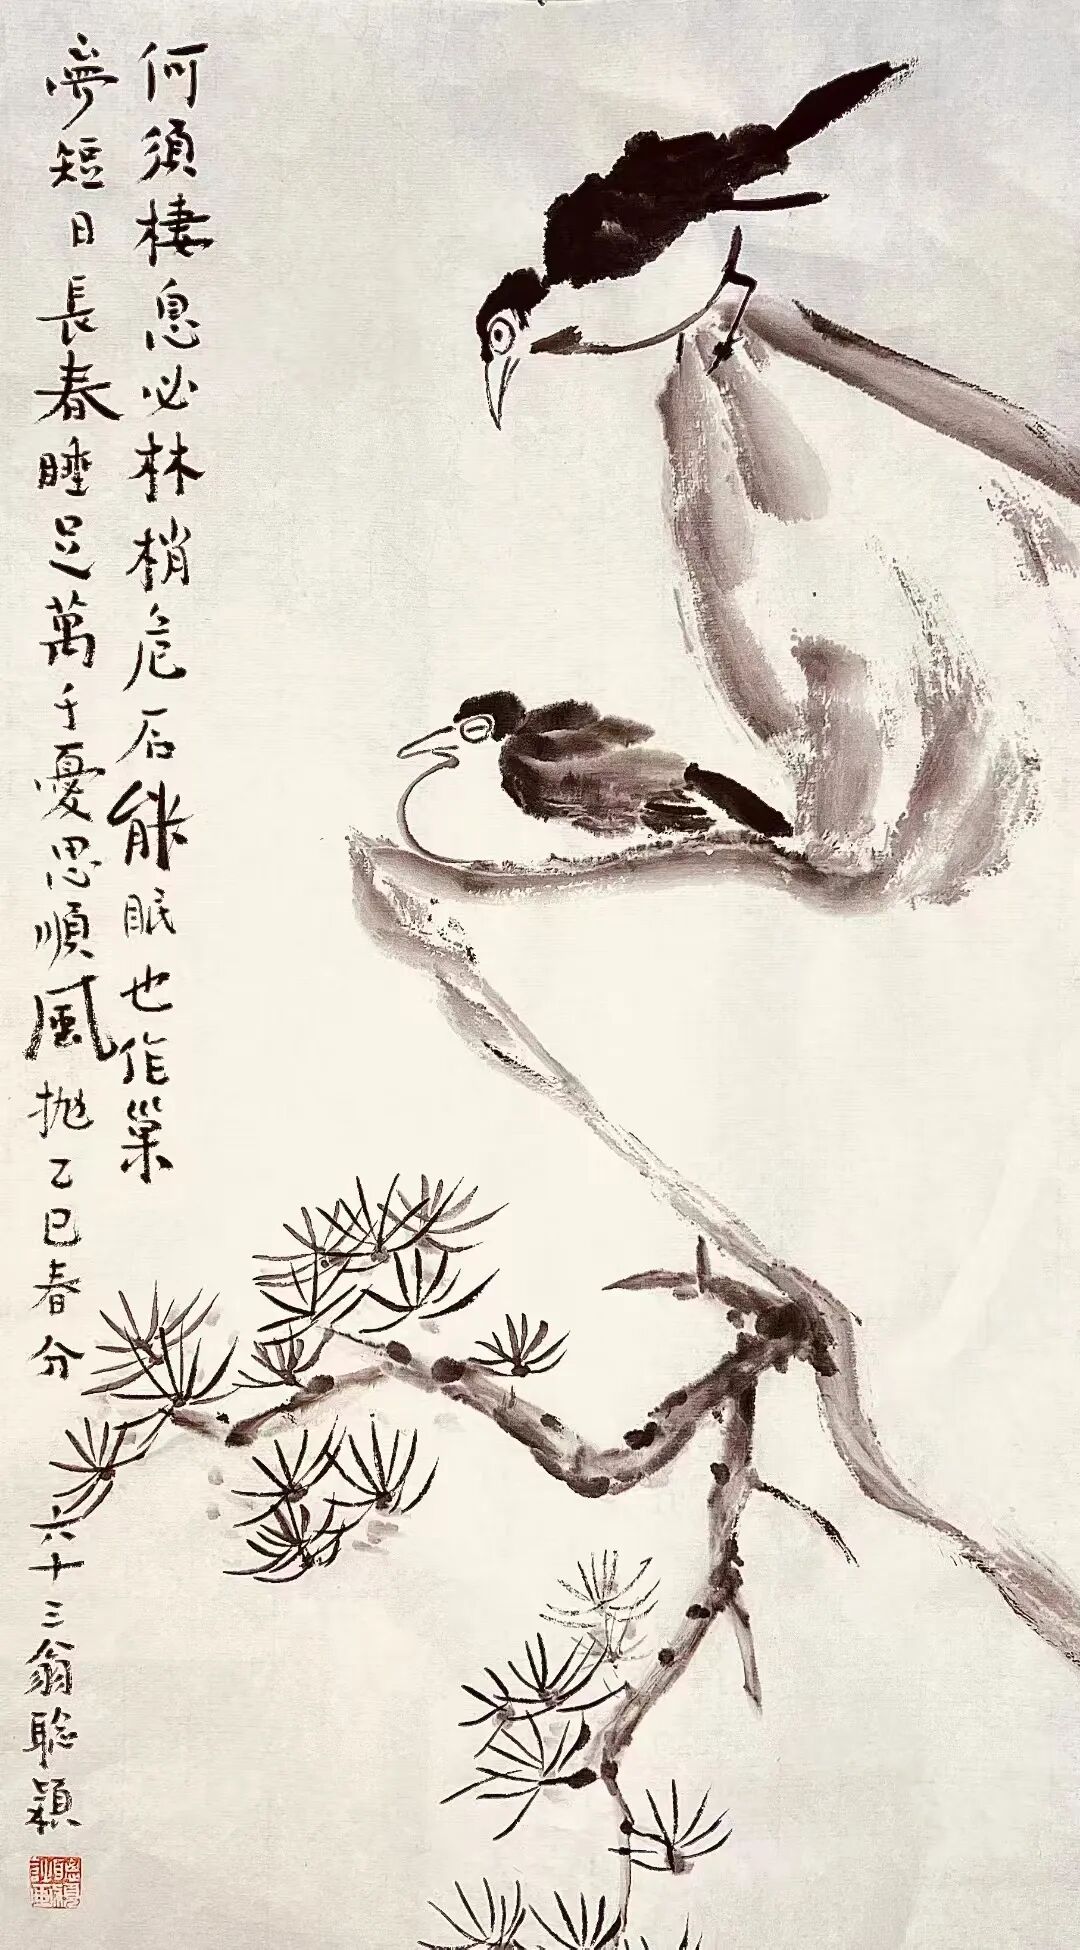 何須棲息必林梢危石能眠也作巢
夢短日長春睡足萬千憂思順風拋乙巳春分
六十三翁聡穎